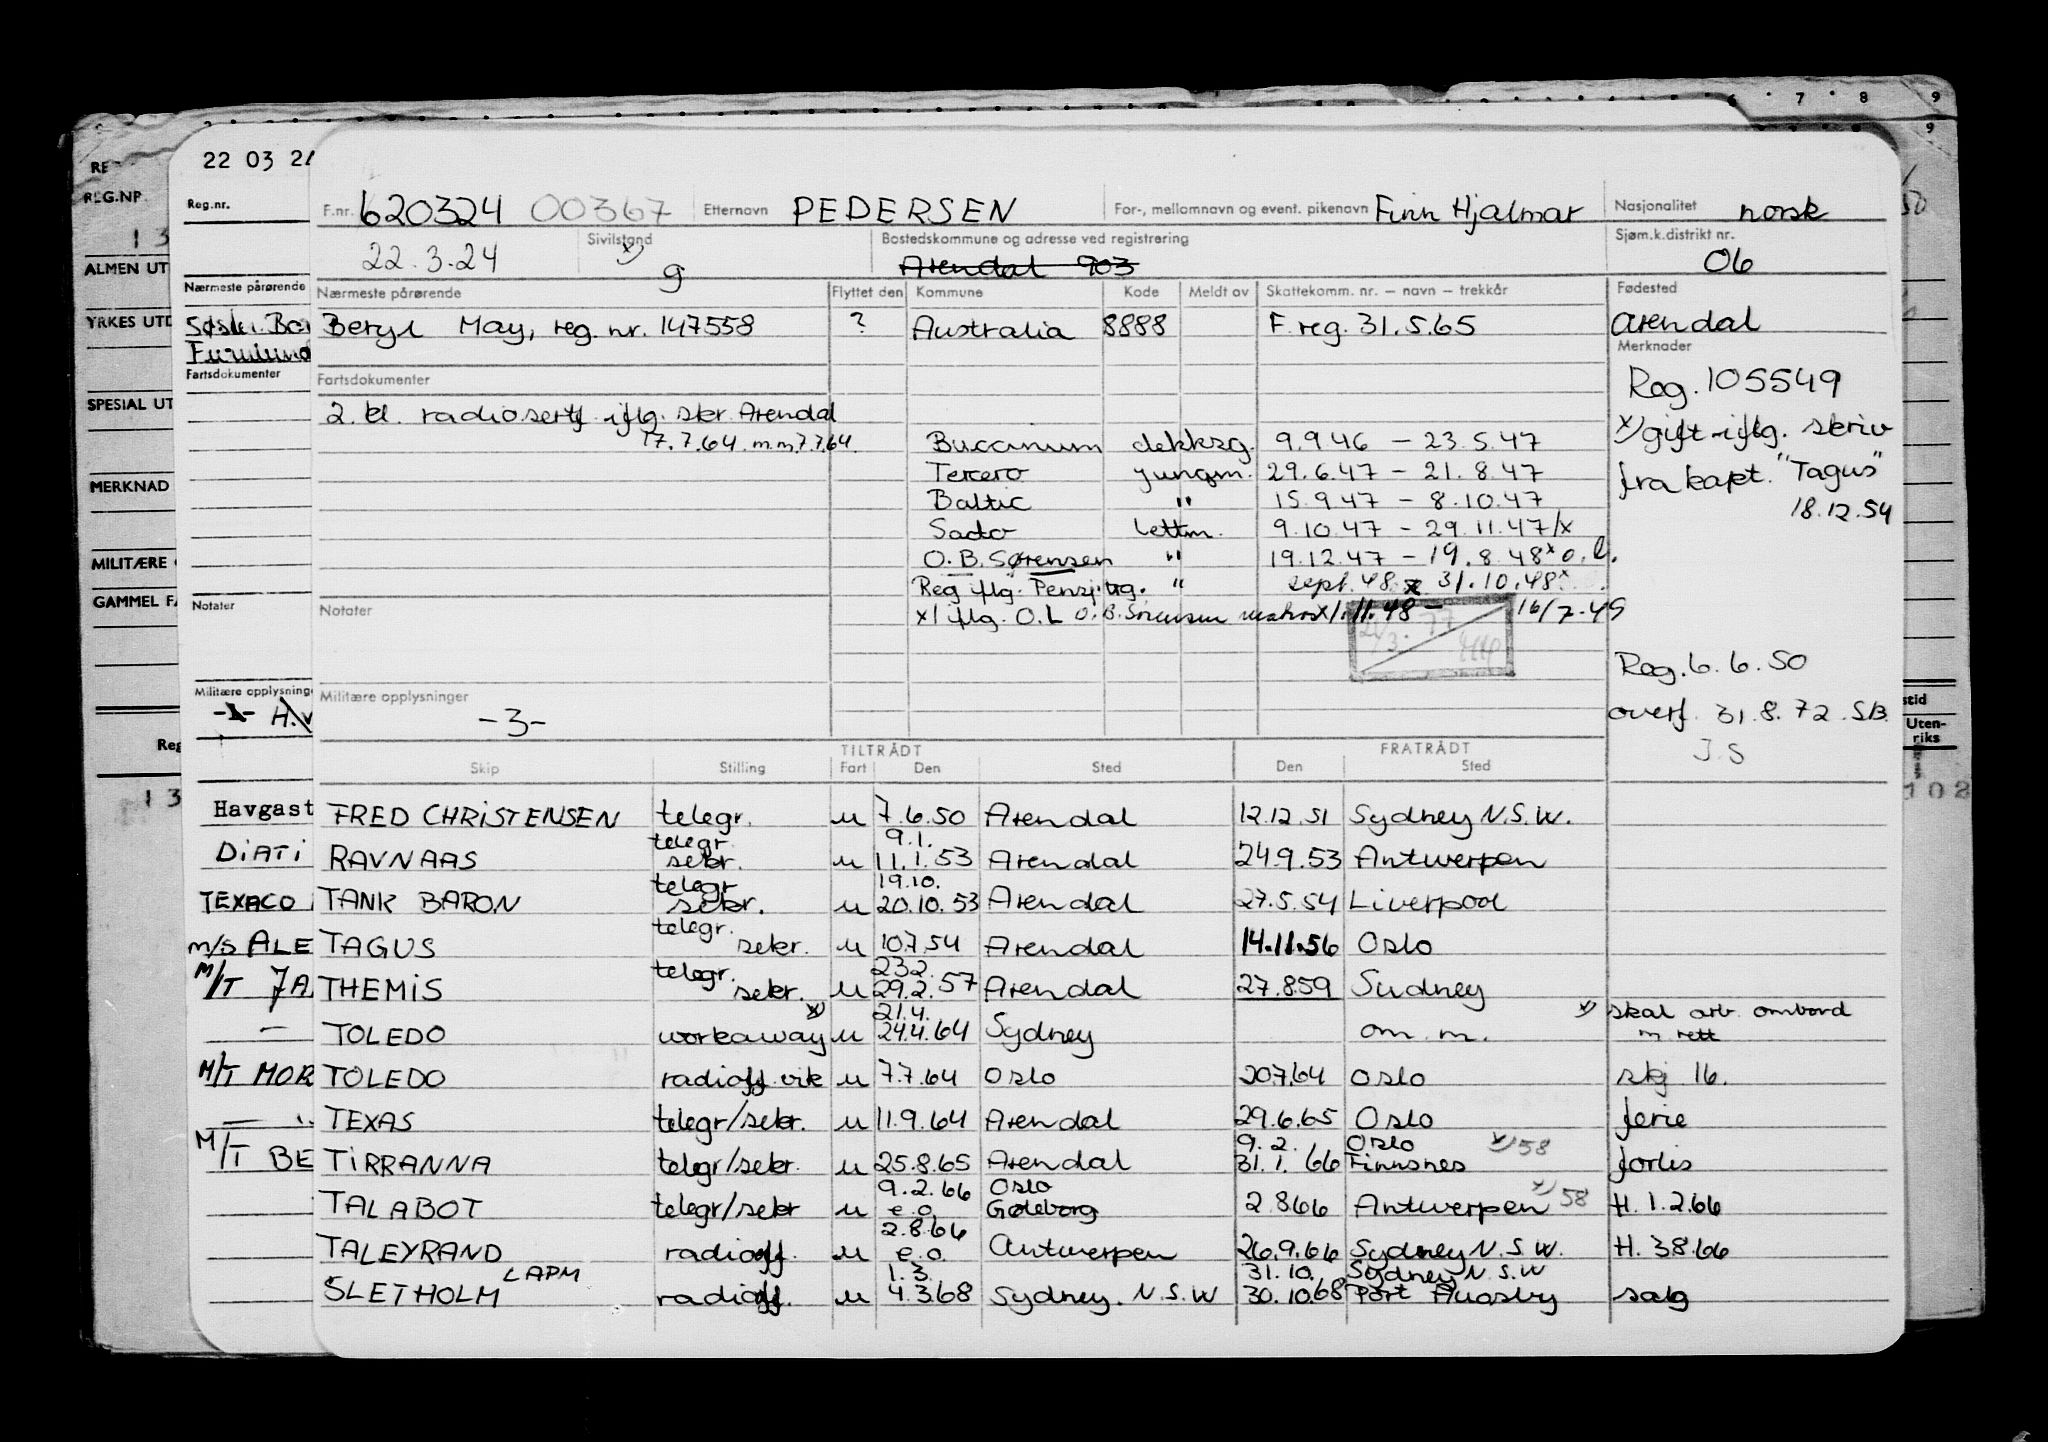 6 7 8 9
9
RE
REG.NR.
1 3
ALMEN UT
YRKES UTD
SPESIAL UT
MERKNAD
MILITÆRE
GAMMEL FA
Reg
1 3
stid
Uten-
riks
102
22 03 24
Reg.nr.
Nærmeste pårørende
Fartsdokumenter
Notater
Militære opplysninge
-1- H.v
Havgast
DiATi
TEXACO
M/S ALE
M/T JA
—
M/T MOR
— "
M/T BE
F.nr. 620324 00367 Etternavn PEDERSEN For-, mellomnavn og event. pikenavn Finn Hjalmar Nasjonalitet norsk
22.3.24 Sivilstand x) g Bostedskommune og adresse ved registrering Arendal 903 Sjøm.k.distrikt nr. 06
Nærmeste pårørende Flyttet den Kommune Kode Meldt av Skattekomm. nr. – navn – trekkår Fødested
Beryl May, reg. nr. 147558 ? Australia 8888 F.reg. 31.5.65 Arendal
Merknader
Fartsdokumenter Reg. 105549
2. kl. radiosertf. iflg. skr. Arendal x) gift iflg. skriv
17.7.64. m.m. 7.7.64. Buccinum dekksg. 9.9.46 – 23.5.47
Tercero jungm. 29.6.47 – 21.8.47 fra kapt. "Tagus"
Baltic " 15.9.47 – 8.10.47 18.12.54
Sado lettm. 9.10.47 – 29.11.47/x
O.B. Sørensen " 19.12.47 – 19.8.48 x o.l.
Reg iflg. Pensj.trg. " sept. 48 x 31.10.48 x
Notater x/ iflg. O.L O.B. Sørensen matros x 1.11.48 – 16/7-49
21/3.77
Reg. 6.6.50
Militære opplysninger
-3- overf. 31.8.72 SB
J.S
TILTRÅDT FRATRÅDT
Skip Stilling Fart Den Sted Den Sted
FRED CHRISTENSEN telegr. u 7.6.50 Arendal 12.12.51 Sydney N.S.W.
telegr. 9.1.
RAVNAAS sekr. u 11.1.53 Arendal 24.9.53 Antwerpen
telegr 19.10.
TANK BARON sekr. u 20.10.53 Arendal 27.5.54 Liverpool
telegr.
TAGUS sekr. u 10.7.54 Arendal 14.11.56 Oslo
telegr. 23.2.
THEMIS sekr. u 29.2.57 Arendal 27.8.59 Sydney
x) 21.4. x) skal arb. ombord
TOLEDO workaway u 24.4.64 Sydney om. m. m rett
TOLEDO radioff. vik u 7.7.64 Oslo 20.7.64 Oslo skj 16.
TEXAS telegr/sekr. u 11.9.64 Arendal 29.6.65 Oslo ferie
9.2. Oslo x) 58
TIRRANNA telegr/sekr. u 25.8.65 Arendal 31.1.66 Finnsnes forlis
9.2.66 Oslo x) 58
TALABOT telegr/sekr u e.o. Gøteborg 2.8.66 Antwerpen H. 1.2.66
2.8.66
TALEYRAND radioff. u e.o. Antwerpen 26.9.66 Sydney N.S.W. H. 3.8.66
LAPM 1.3. 31.10. Sydney N.S.W
SLETHOLM radioff. u 4.3.68 Sydney. N.S.W 30.10.68 Port salg